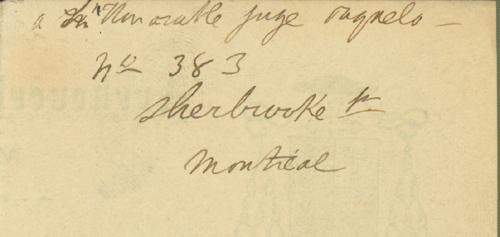 a Sn Honorable juge pagnelo -
no 383
sherbrooke st
montréal